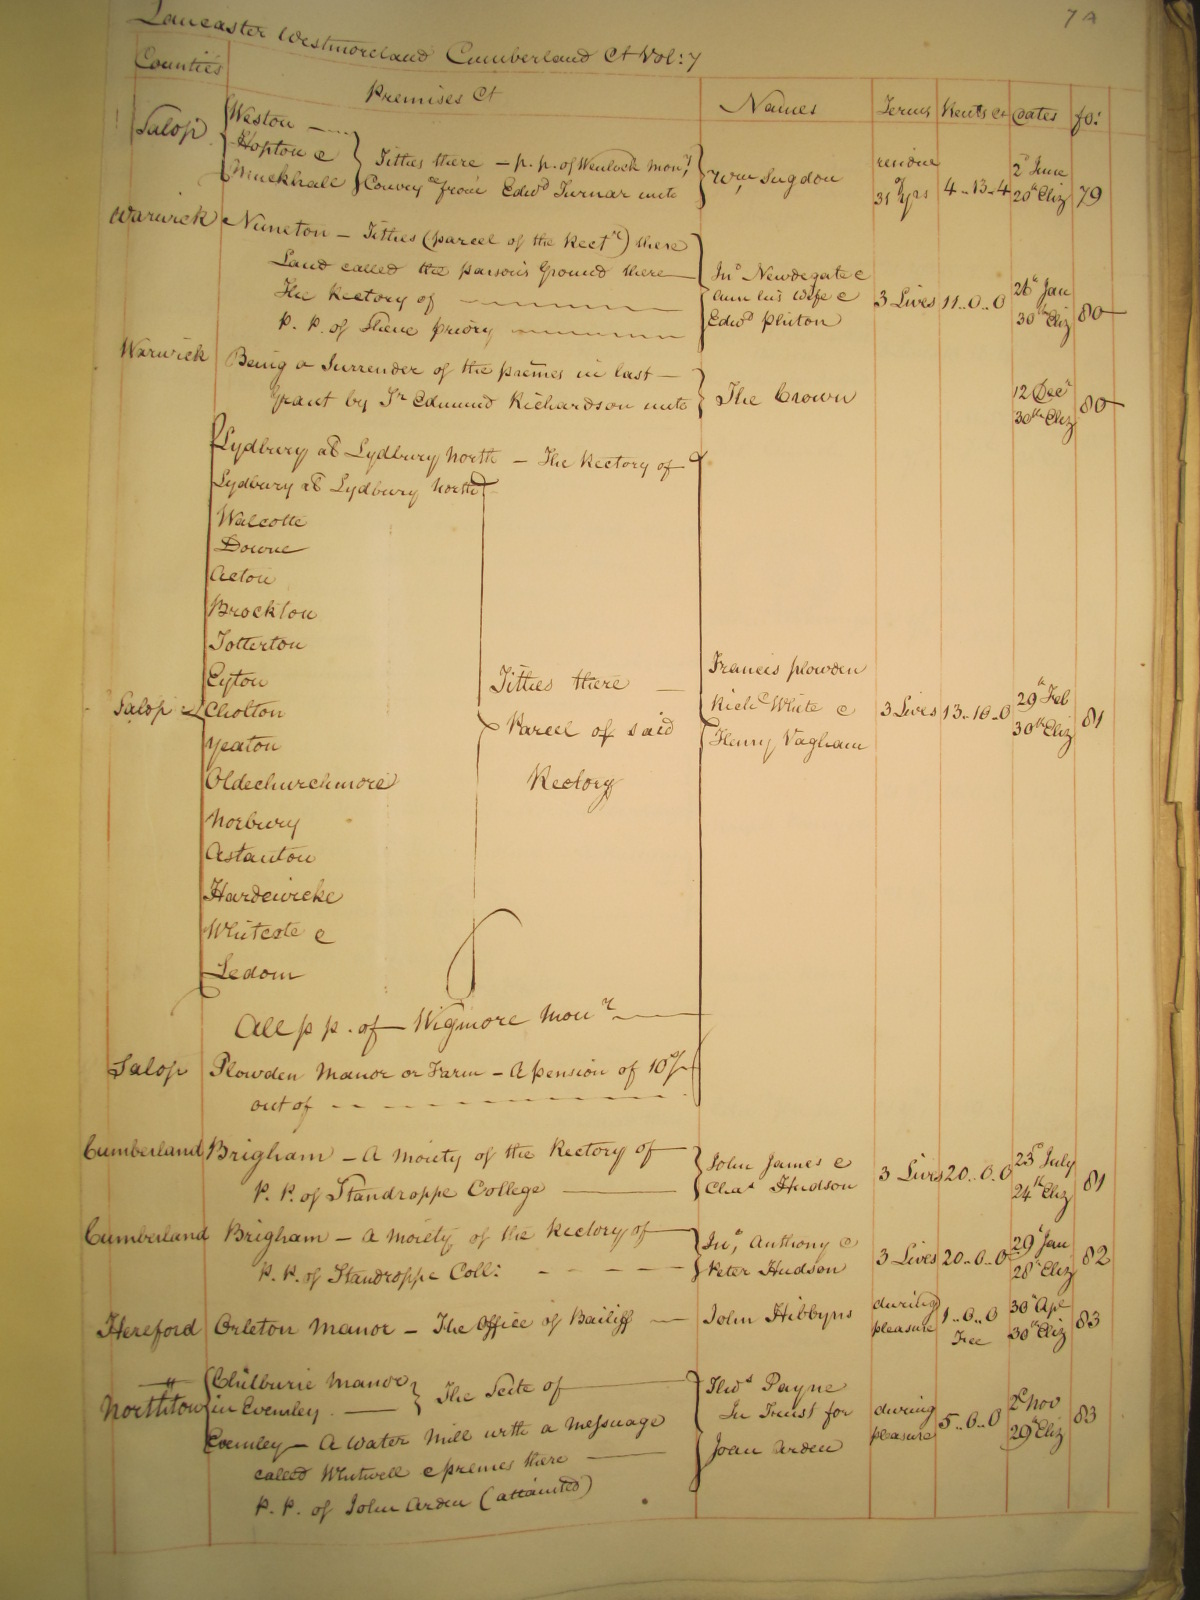 7A
Lancaster Westmoreland Cumberland Ct Vol: 7
Counties Premises Ct Names Terms Rents &c Dates fo:
Salop Weston
Hopton &
Muckhale
Tithes there — p. p. of Wenlock Mon:y
Convey ce from Edwd Turnar unto
Wm Sugdon
residue of 31 yrs 4..13..4 2d June 20th Eliz 79
Warwick Nuneton — Tithes (parcel of the Rect'y) there
Land called the parson's Ground there
The Rectory of
P. P. of Shene priory
Jno Newdegate &
his wife &
Edwd
3 Lives 11..0..0 26th Jan 30th Eliz 80
Warwick Being a Surrender of the premes in last —
Grant by Sr Edmund Richardson unto
The Crown
12 Decr 30th Eliz 80
Lydbury als Lydbury North — The Rectory of
Lydbury als Lydbury North
Walcotte
Downe
Acton
Brockton
Totterton
Eyton
Salop Cholton
Yeaton
Oldechurchmore
Norbury
Astanton
Hardewicke
Whitcote &
Ledom
Tithes there —
Parcel of said
Rectory
Francis Plowden
Richd White &
Henry Vagham
3 Lives 13..10..0 29th Feb 30th Eliz 81
All p p. of Wigmore Mon'y
Salop Plowden Manor or Farm — A pension of 10s/
out of
Cumberland Brigham — A moiety of the Rectory of
P. P. of Standroppe College
John James &
Chas Hudson
3 Lives 20..0..0 23d July 24th Eliz 81
Cumberland Brigham — A moiety of the Rectory of
P. P. of Standroppe Coll:
Jno, Anthony &
Peter Hudson
3 Lives 20..0..0 29th Jan 28th Eliz 82
Hereford Orleton Manor — The Office of Bailiff —
John Hibbyns
during pleasure 1..0..0 Fee 30th Apl 30th Eliz 83
Northton Chilburie Manor
in Evemley
The Scite of
Evemley — A Water Mill with a Messuage
called Whitwell & premes there
P. P. of John Arden (attainted)
Thos Payne
In Trust for
Joan Arden
during pleasure 5..0..0 2d Nov 29th Eliz 83